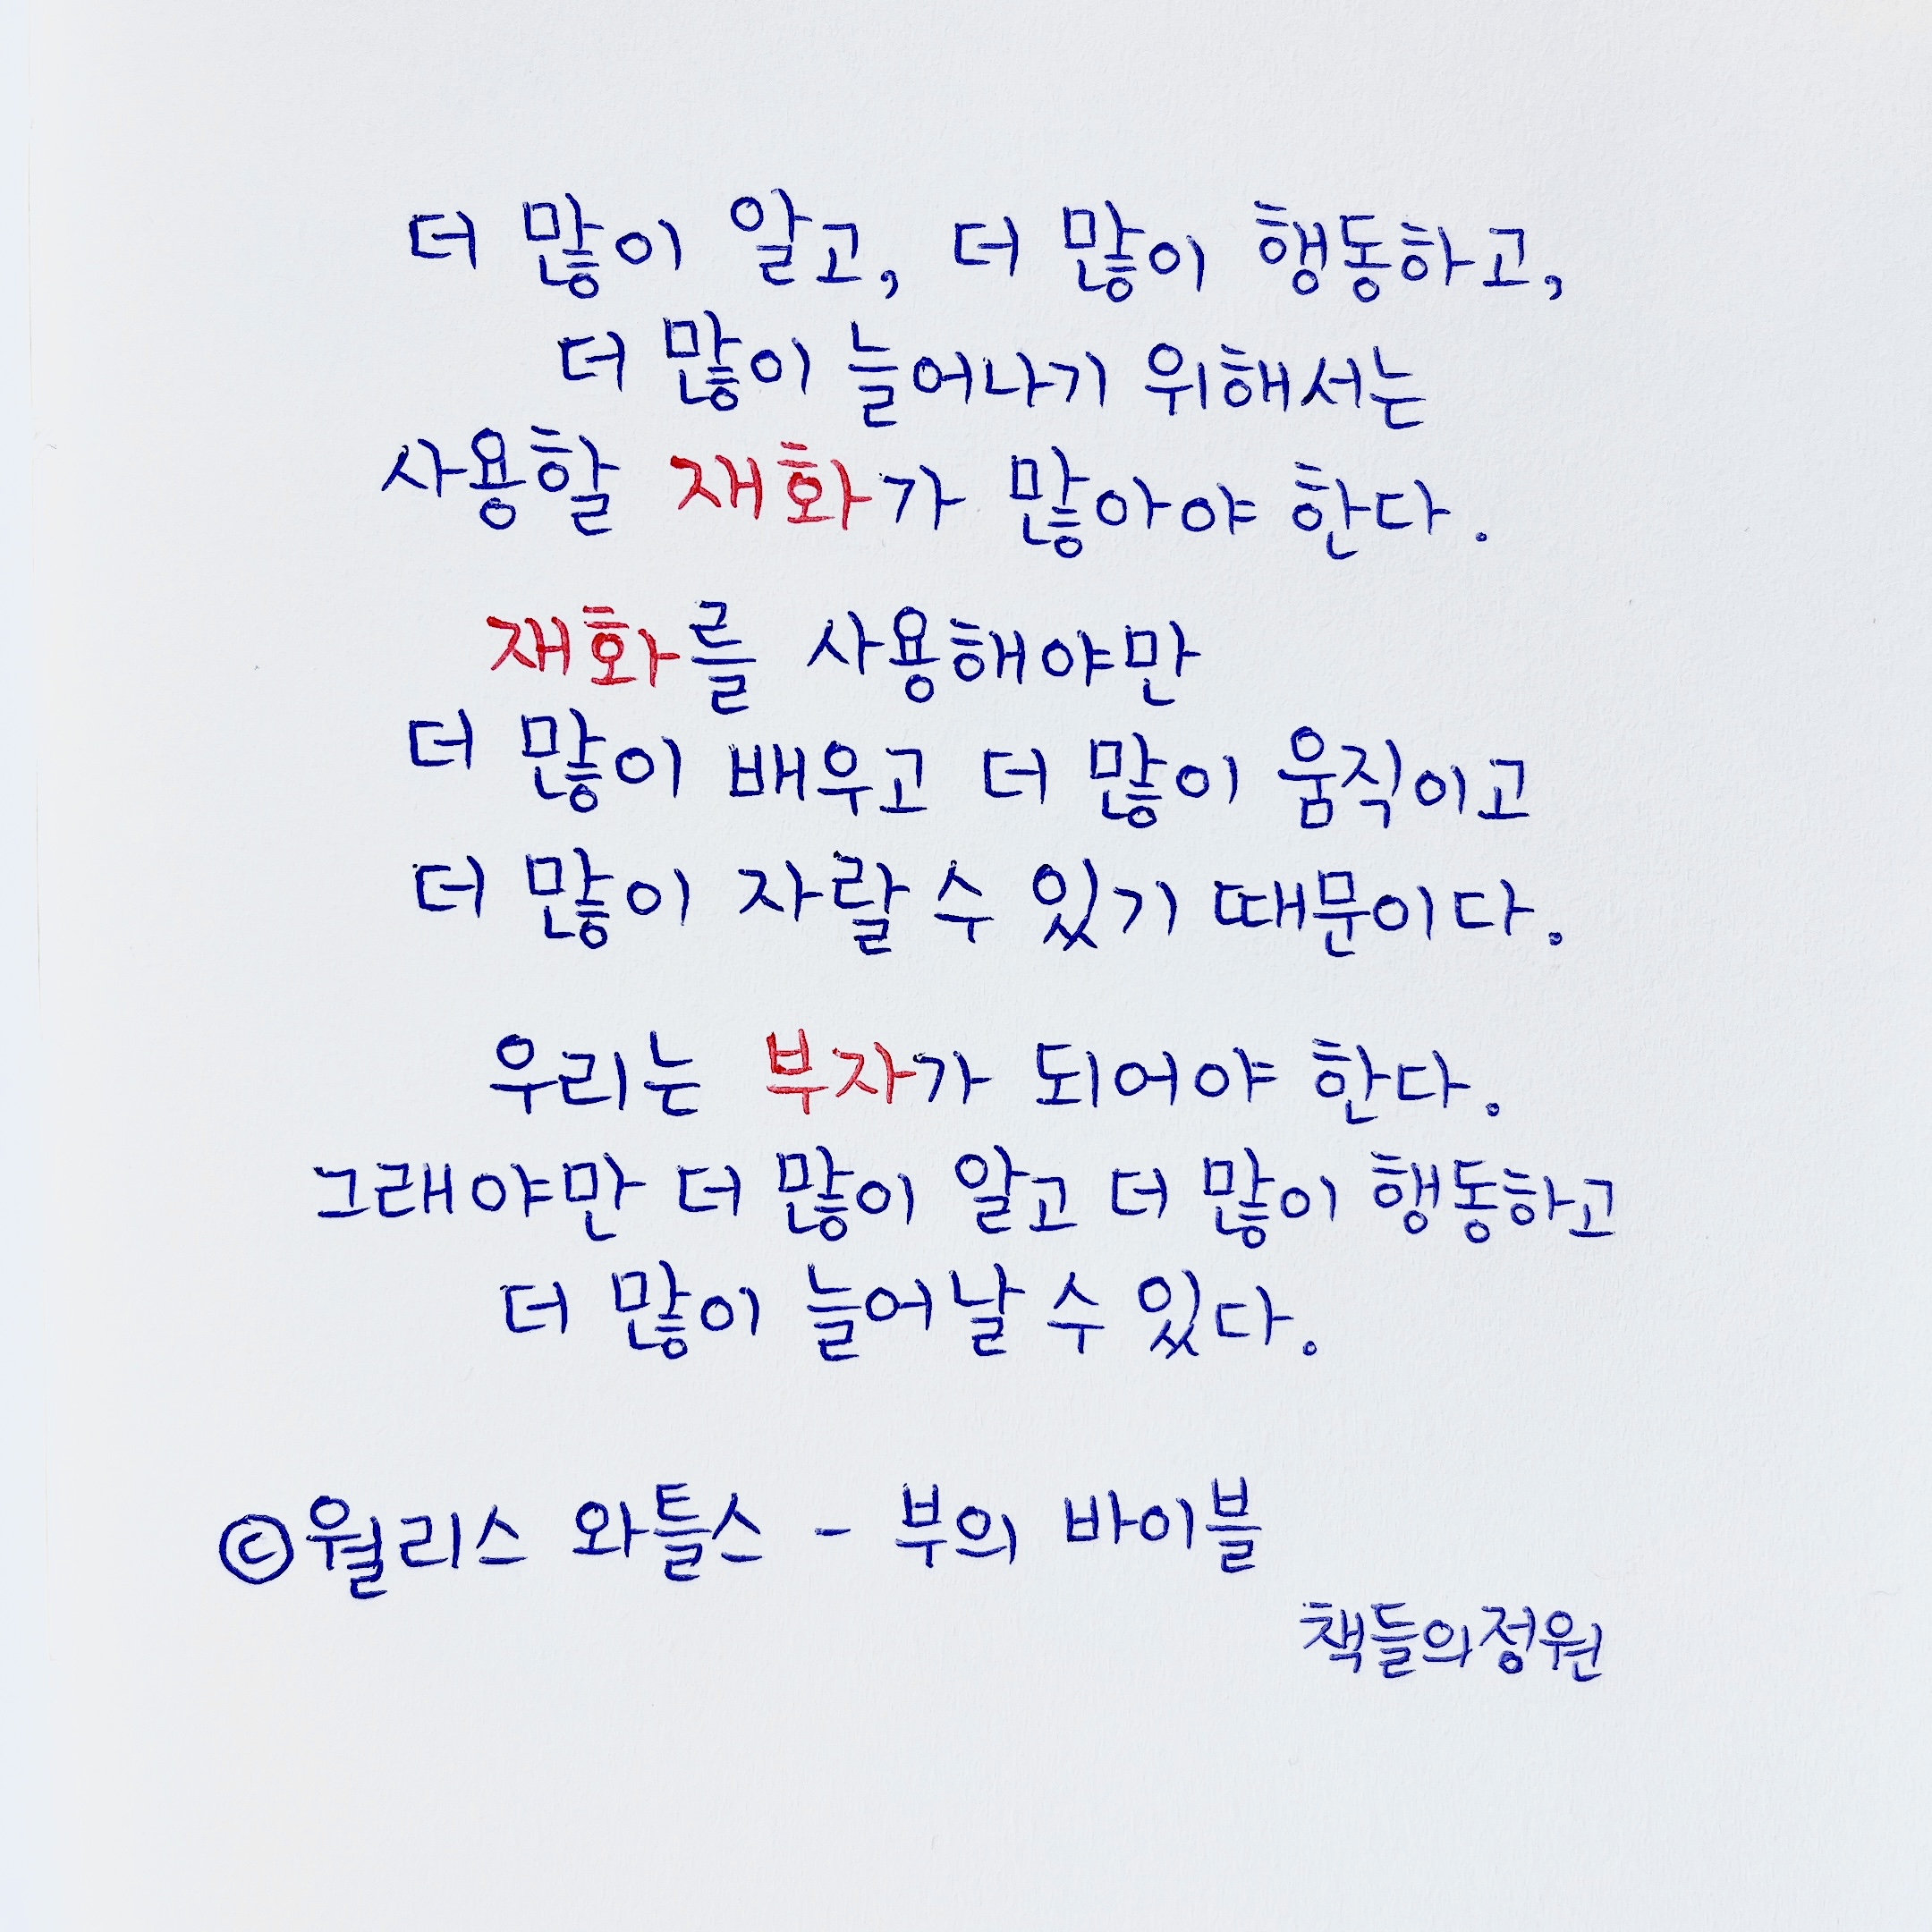 더 많이 알고, 더 많이 행동하고,
더 많이 늘어나기 위해서는
사용할 재화가 많아야 한다.
재화를 사용해야만
더 많이 배우고 더 많이 움직이고
더 많이 자랄 수 있기 때문이다.
우리는 부자가 되어야 한다.
그래야만 더 많이 알고 더 많이 행동하고
더 많이 늘어날 수 있다.
©월리스 와틀스 - 부의 바이블
책들의정원